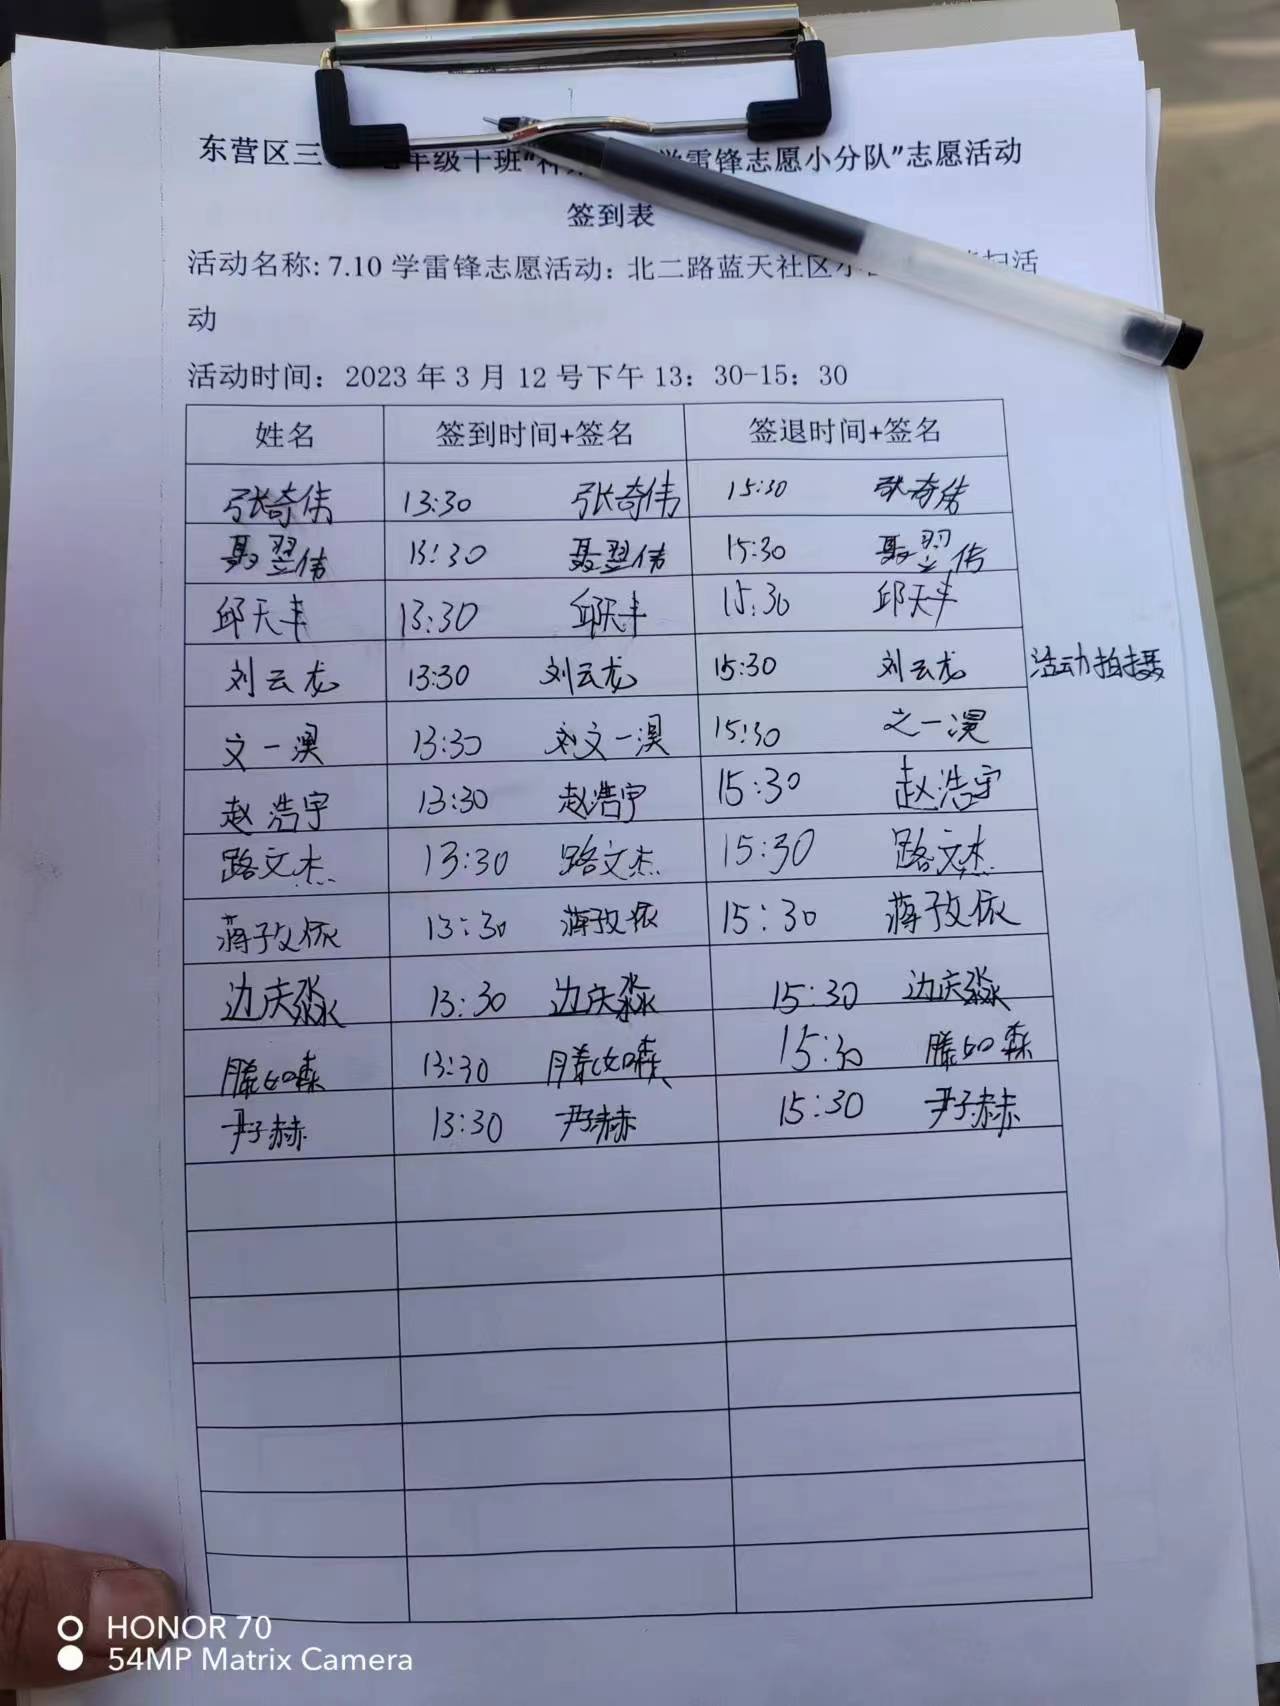 东营区三 年级十班“ 学雷锋志愿小分队”志愿活动
签到表
活动名称: 7.10 学雷锋志愿活动：北二路蓝天社区 活
动
活动时间：2023 年 3 月 12 号下午 13：30-15：30
姓名 签到时间+签名 签退时间+签名
张奇伟 13:30 张奇伟 15:30 张奇伟
聂翌伟 13:30 聂翌伟 15:30 聂翌伟
邱天丰 13:30 邱天丰 15:30 邱天丰
刘云龙 13:30 刘云龙 15:30 刘云龙 活动拍摄
文一淏 13:30 刘文一淏 15:30 文一淏
赵浩宇 13:30 赵浩宇 15:30 赵浩宇
路文杰 13:30 路文杰 15:30 路文杰
蒋孜依 13:30 蒋孜依 15:30 蒋孜依
边庆淼 13:30 边庆淼 15:30 边庆淼
滕如森 13:30 滕如森 15:30 滕如森
尹子赫 13:30 尹子赫 15:30 尹子赫
HONOR 70
54MP Matrix Camera